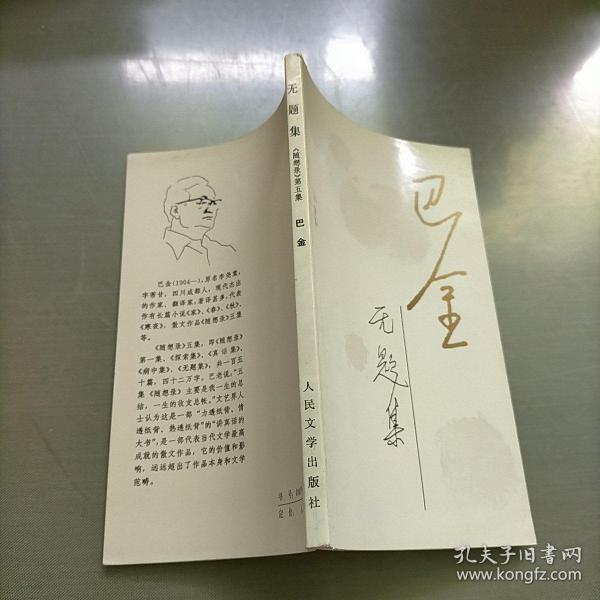 巴金
无题集
无题集
《随想录》第五集
巴金
人民文学出版社
巴金(1904—),原名李尧棠,
字芾甘,四川成都人,现代杰出
的作家、翻译家,著译甚多,代表
作有长篇小说《家》、《春》、《秋》、
《寒夜》,散文作品《随想录》五集
等。
《随想录》五集,即《随想录》
第一集、《探索集》、《真话集》、
《病中集》、《无题集》,共一百五
十篇,四十二万字。巴老说:“五
集《随想录》主要是我一生的总
结,一生的收支总帐。”文艺界人
士认为这是一部“力透纸背,情
透纸背,热透纸背”的“讲真话的
大书”,是一部代表当代文学最高
成就的散文作品,它的价值和影
响,远远超出了作品本身和文学
范畴。
书号
定价
孔夫子旧书网
www.kongfz.com